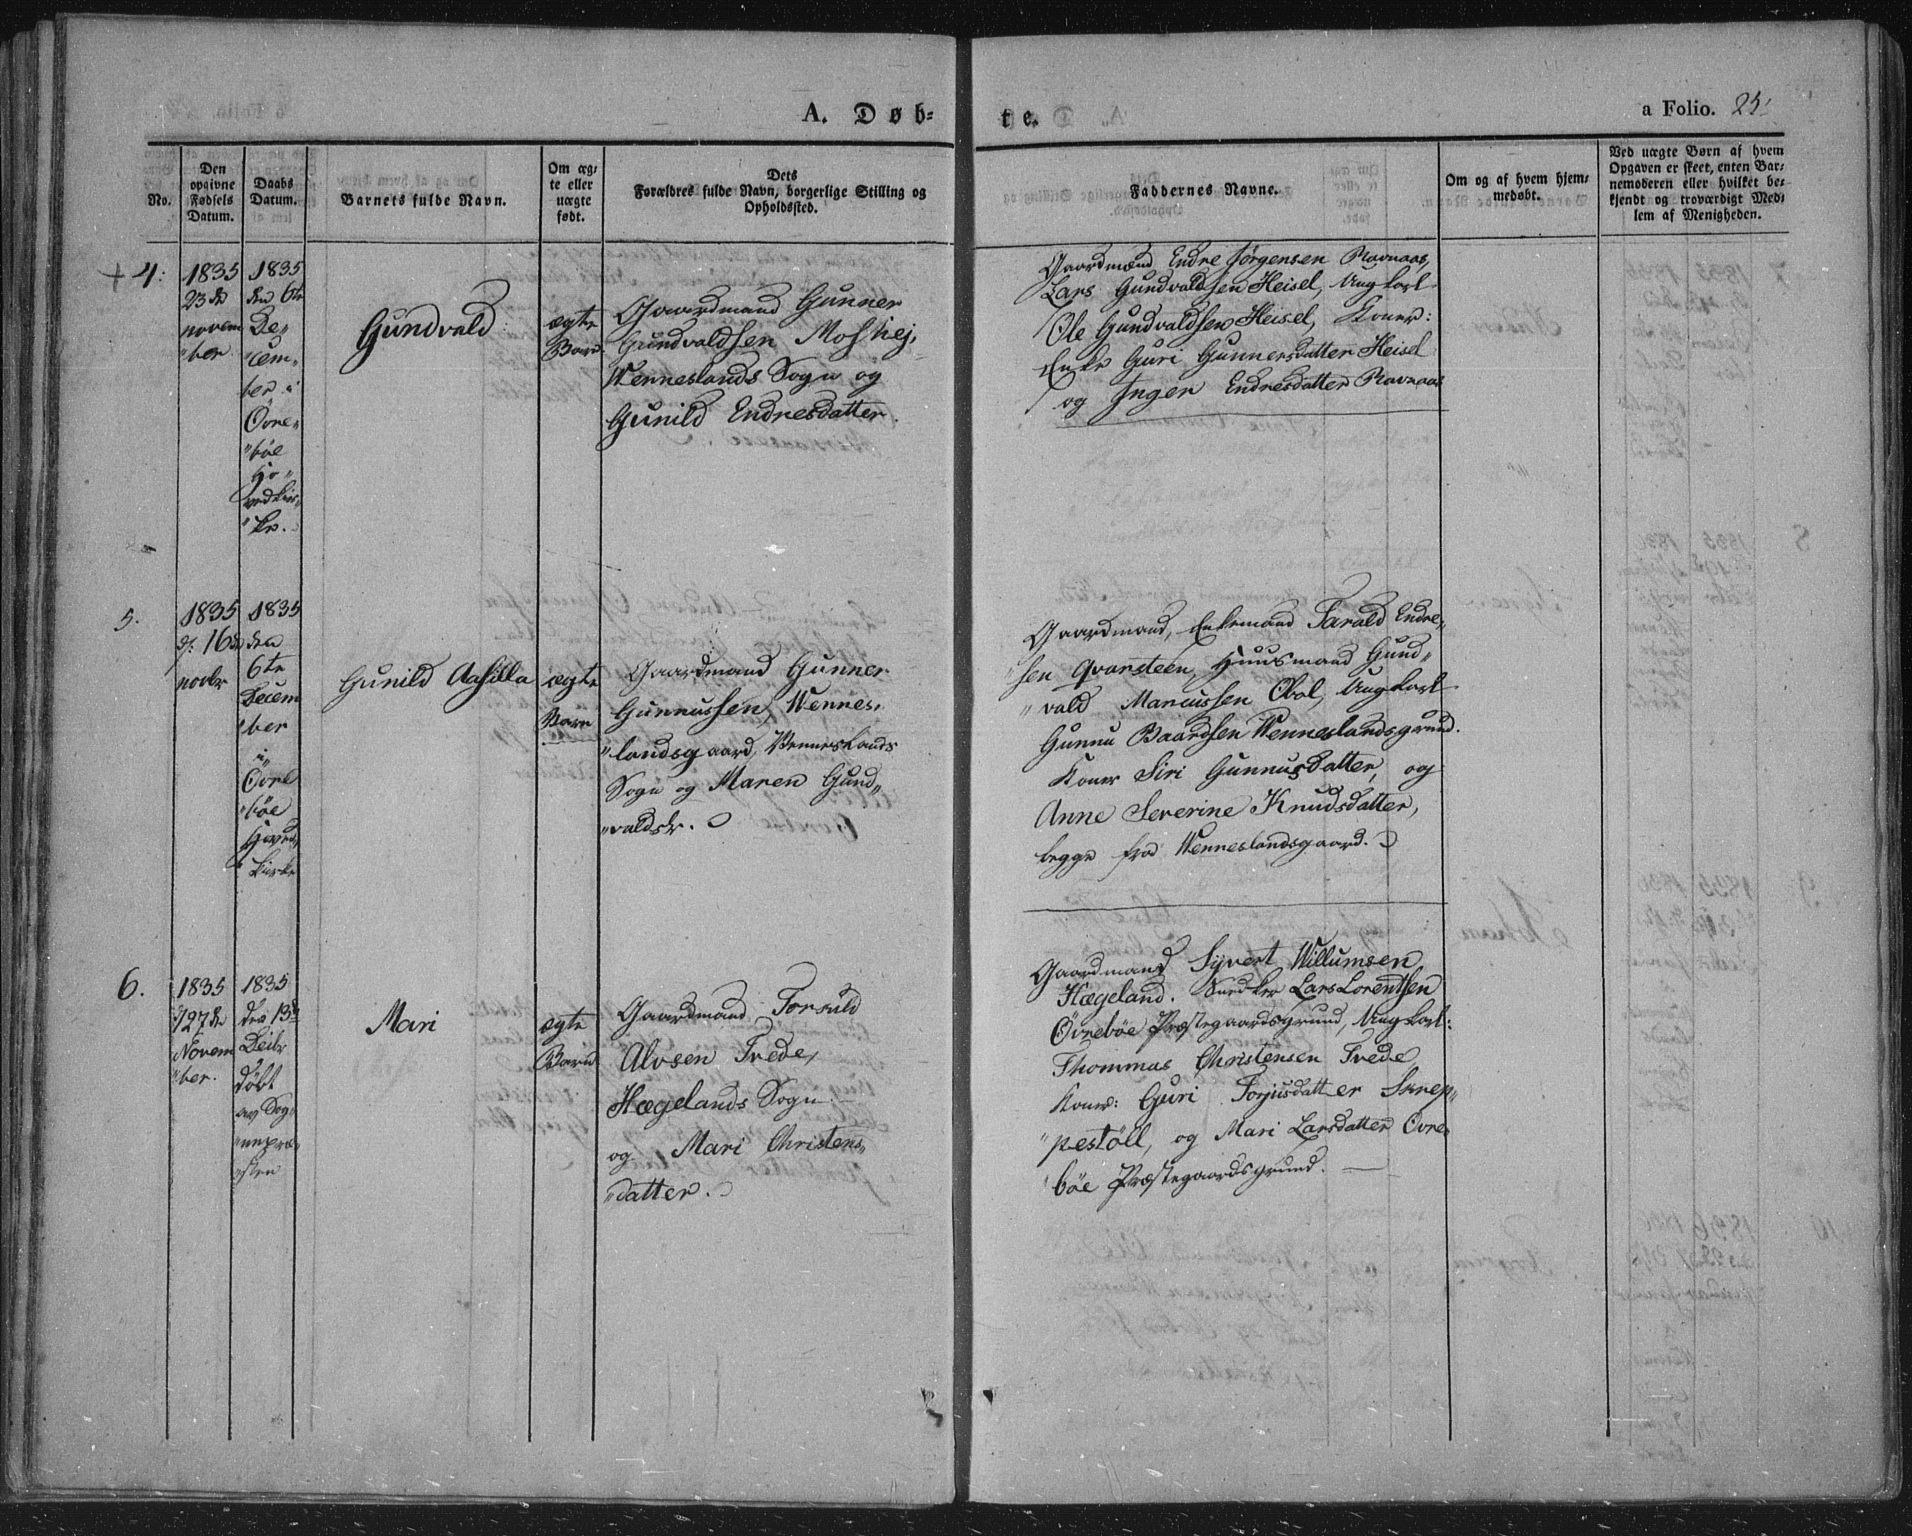 A. Døb-
te.
a Folio. 25.
No.
Den
opgivne
Fødsels
Datum.
Daabs
Datum.
Barnets fulde Navn.
Om æg-
te eller
uægte
født.
Dets
Forældres fulde Navn, borgerlige Stilling og
Opholdssted.
Faddernes Navne.
Om og af hvem hjem-
medøbt.
Ved uægte Børn af hvem
Opgaven er skeet, enten Bar-
nemoderen eller hvilket be-
kjendt og troværdigt Med-
lem af Menigheden.
+ 4.
1835
23de
novem
"ber
1835
den 6te
De-
"cem-
ber i
Øvre-
"bøe
Ho-
"vedkir-
"ke.
Gundvald
ægte
Barn.
Gaardmand Gunner
Gundvaldsen Moshej,
Wenneslands Sogn og
Gunild Endresdatter.
Gaardmænd Endre Jørgensen Ravnaas,
Lars Gundvaldsen Heisel, Ungkarl
Ole Gundvaldsen Heisel, Koner:
Enke Guri Gunnersdatter Heisel
og Inger Endresdatter Ravnaas
5.
1835
d. 16de
novbr
1835
den
6te
Decem
"ber
i
Øvre
"bøe
Hoved
"kirke
Gunild Aasilla
ægte
Barn
Gaardmand Gunner
Gunnussen, Wennes-
"landsgaard, Venneslands
Sogn og Maren Gund-
"valdsdr.
Gaardmand, Enkemand Tarald Endre-
"sen Qvarsteen, Huusmand Gund-
"vald Marcussen Obol, Ungkarl
Gunnu Baardsen Wenneslandsgrund.
Koner Siri Gunnusdatter, og
Anne Severine Knudsdatter,
begge fra Wenneslandsgaard.
6.
1835
d 27de
Novem
"ber.
1835
den 13de
Decbr
døbt
av Sog-
"nepræ-
"sten
Mari
ægte
Barn
Gaardmand Torsuld
Alvsen Trede,
Hægelands Sogn
og Mari Christens-
"datter.
Gaardmand Syvert Willumsen
Hægeland. Snedker Lars Lorentsen
Øvrebøe Præstegaardsgrund, Ungkarl:
Thommas Christensen Trede
Koner: Guri Torjusdatter Skrep-
"pestøll, og Mari Larsdatter Øvre-
"bøe Præstegaardsgrund.